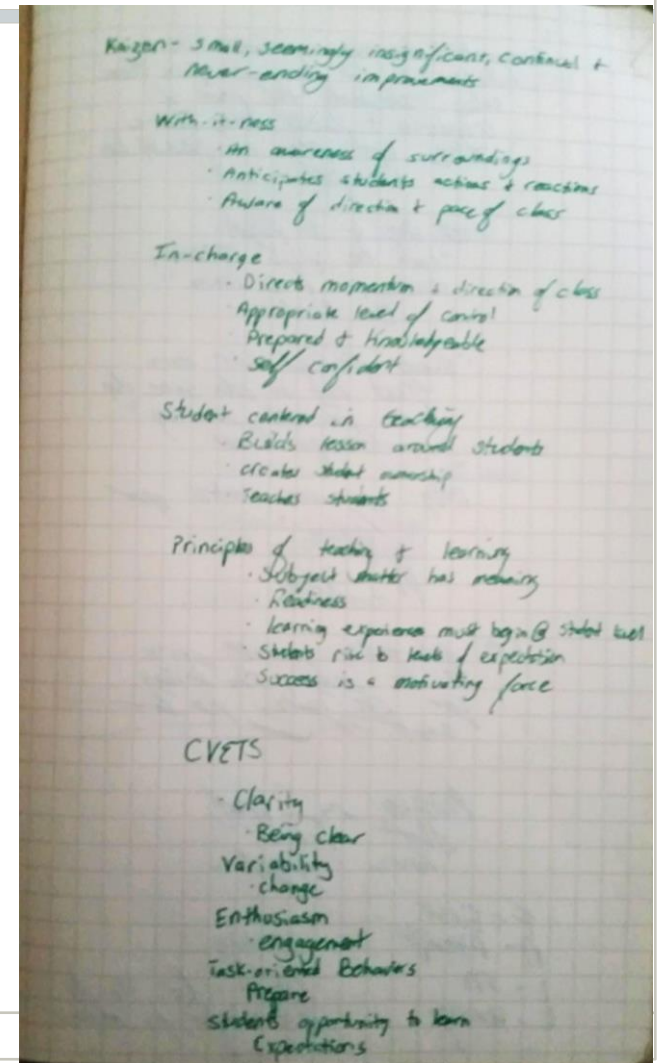 Kaizen - small, seemingly insignificant, continual +
never-ending improvements
With-it-ness
· An awareness of surroundings
· Anticipates students actions + reactions
· Aware of direction + pace of class
In-charge
· Directs momentum + direction of class
Appropriate level of control
Prepared + Knowledgeable
· self confident
Student centered in teaching
· Builds lesson around students
· creates student ownership
· Teaches students
Principles of teaching + learning
· Subject matter has meaning
· Readiness
· learning experiences must begin @ student level
· Students rise to levels of expectation
Success is a motivating force
CVETS
· Clarity
· Being clear
Variability
· change
Enthusiasm
· engagement
Task-oriented Behaviors
Prepare
Students opportunity to learn
Expectations